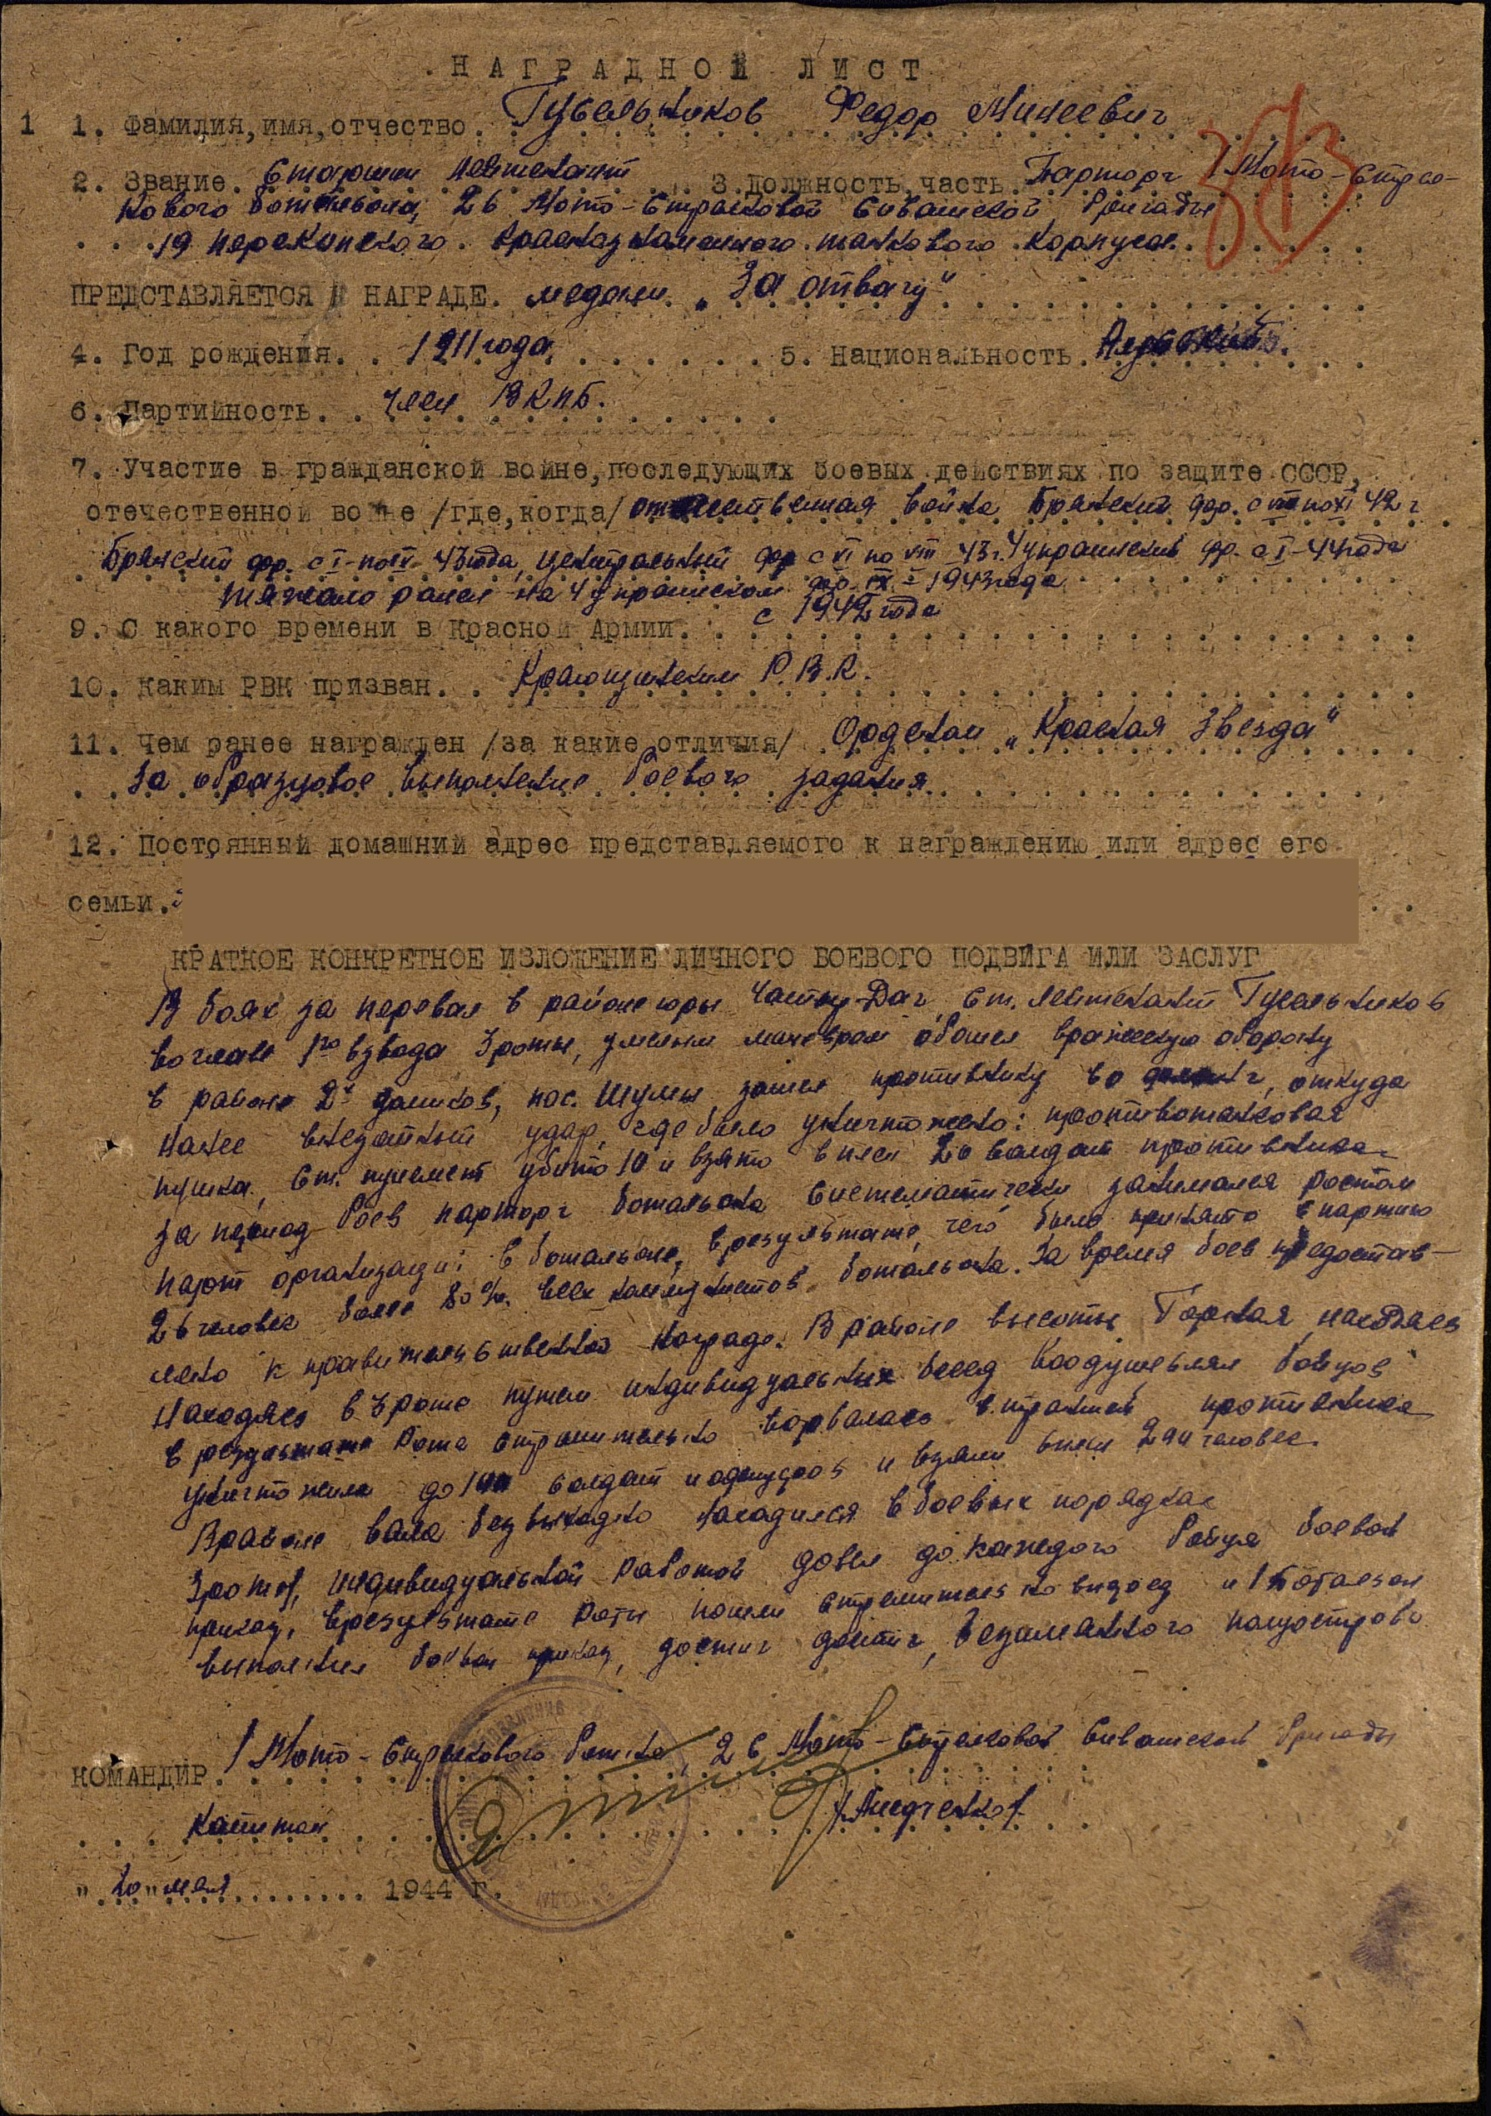 НАГРАДНОЙ ЛИСТ
1 1. Фамилия, имя, отчество. Гусельников Федор Минеевич
2. Звание. Старший лейтенант 3. Должность, часть. Парторг 1 Мото-стрел-
кового батальона, 26 Мото-Стрелковой Сивашской бригады
19 Перекопского Краснознаменного танкового корпуса.
ПРЕДСТАВЛЯЕТСЯ К НАГРАДЕ. медали „За отвагу"
4. Год рождения. 1911 года. 5. Национальность.
6. Партийность. член ВКПБ.
7. Участие в гражданской войне, последующих боевых действиях по защите СССР,
отечественной войне /где, когда/ отечественная война Брянский фр. с VII по XI 42 г
Брянский фр. с I по 43 года, Центральный фр с VI по VIII 43 г. 4 украинский фр. с I-44 года
тяжело ранен на 4 украинском фр. IX - 1943 года
9. С какого времени в Красной Армии. с 1942 года
10. Каким РВК призван. Р.В.К.
11. Чем ранее награжден /за какие отличия/ Орденом „Красная Звезда"
за образцовое выполнение боевого задания.
12. Постоянный домашний адрес представляемого к награждению или адрес его
семьи.
КРАТКОЕ КОНКРЕТНОЕ ИЗЛОЖЕНИЕ ЛИЧНОГО БОЕВОГО ПОДВИГА ИЛИ ЗАСЛУГ
В боях за перевал в районе горы Ст. лейтенант Гусельников
во главе 1го взвода 3 роты, умелым маневром обошел вражескую оборону
в районе 2х домиков, пос. Шулы зашел противнику во фланг, откуда
нанес внезапный удар, где было уничтожено: противотанковая
пушка, ст. пулемет убито 10 и взято в плен 20 солдат противника.
За период боев парторг батальона систематически занимался ростом
парт организации в батальоне, в результате чего было принято в партию
26 человек более 80%. всех коммунистов батальона. За время боев предостав-
лено к правительственной награде. В районе высоты Горная,
находясь в 3 роте путем индивидуальных бесед воодушевлял бойцов
в результате рота стремительно ворвалась в траншеи противника
уничтожила до солдат и офицеров и взяли в плен человек.
В районе вала безвыходно находился в боевых порядках
3 роты, индивидуальной работой довел до каждого бойца боевой
приказ, в результате роты пошли стремительно вперед и 1 батальон
выполнил боевой приказ, достиг полуострова
КОМАНДИР 1 Мото-Стрелкового бат-на, 26 Мото-Стрелковой Сивашской бригады
Капитан
„20" мая 1944 г.